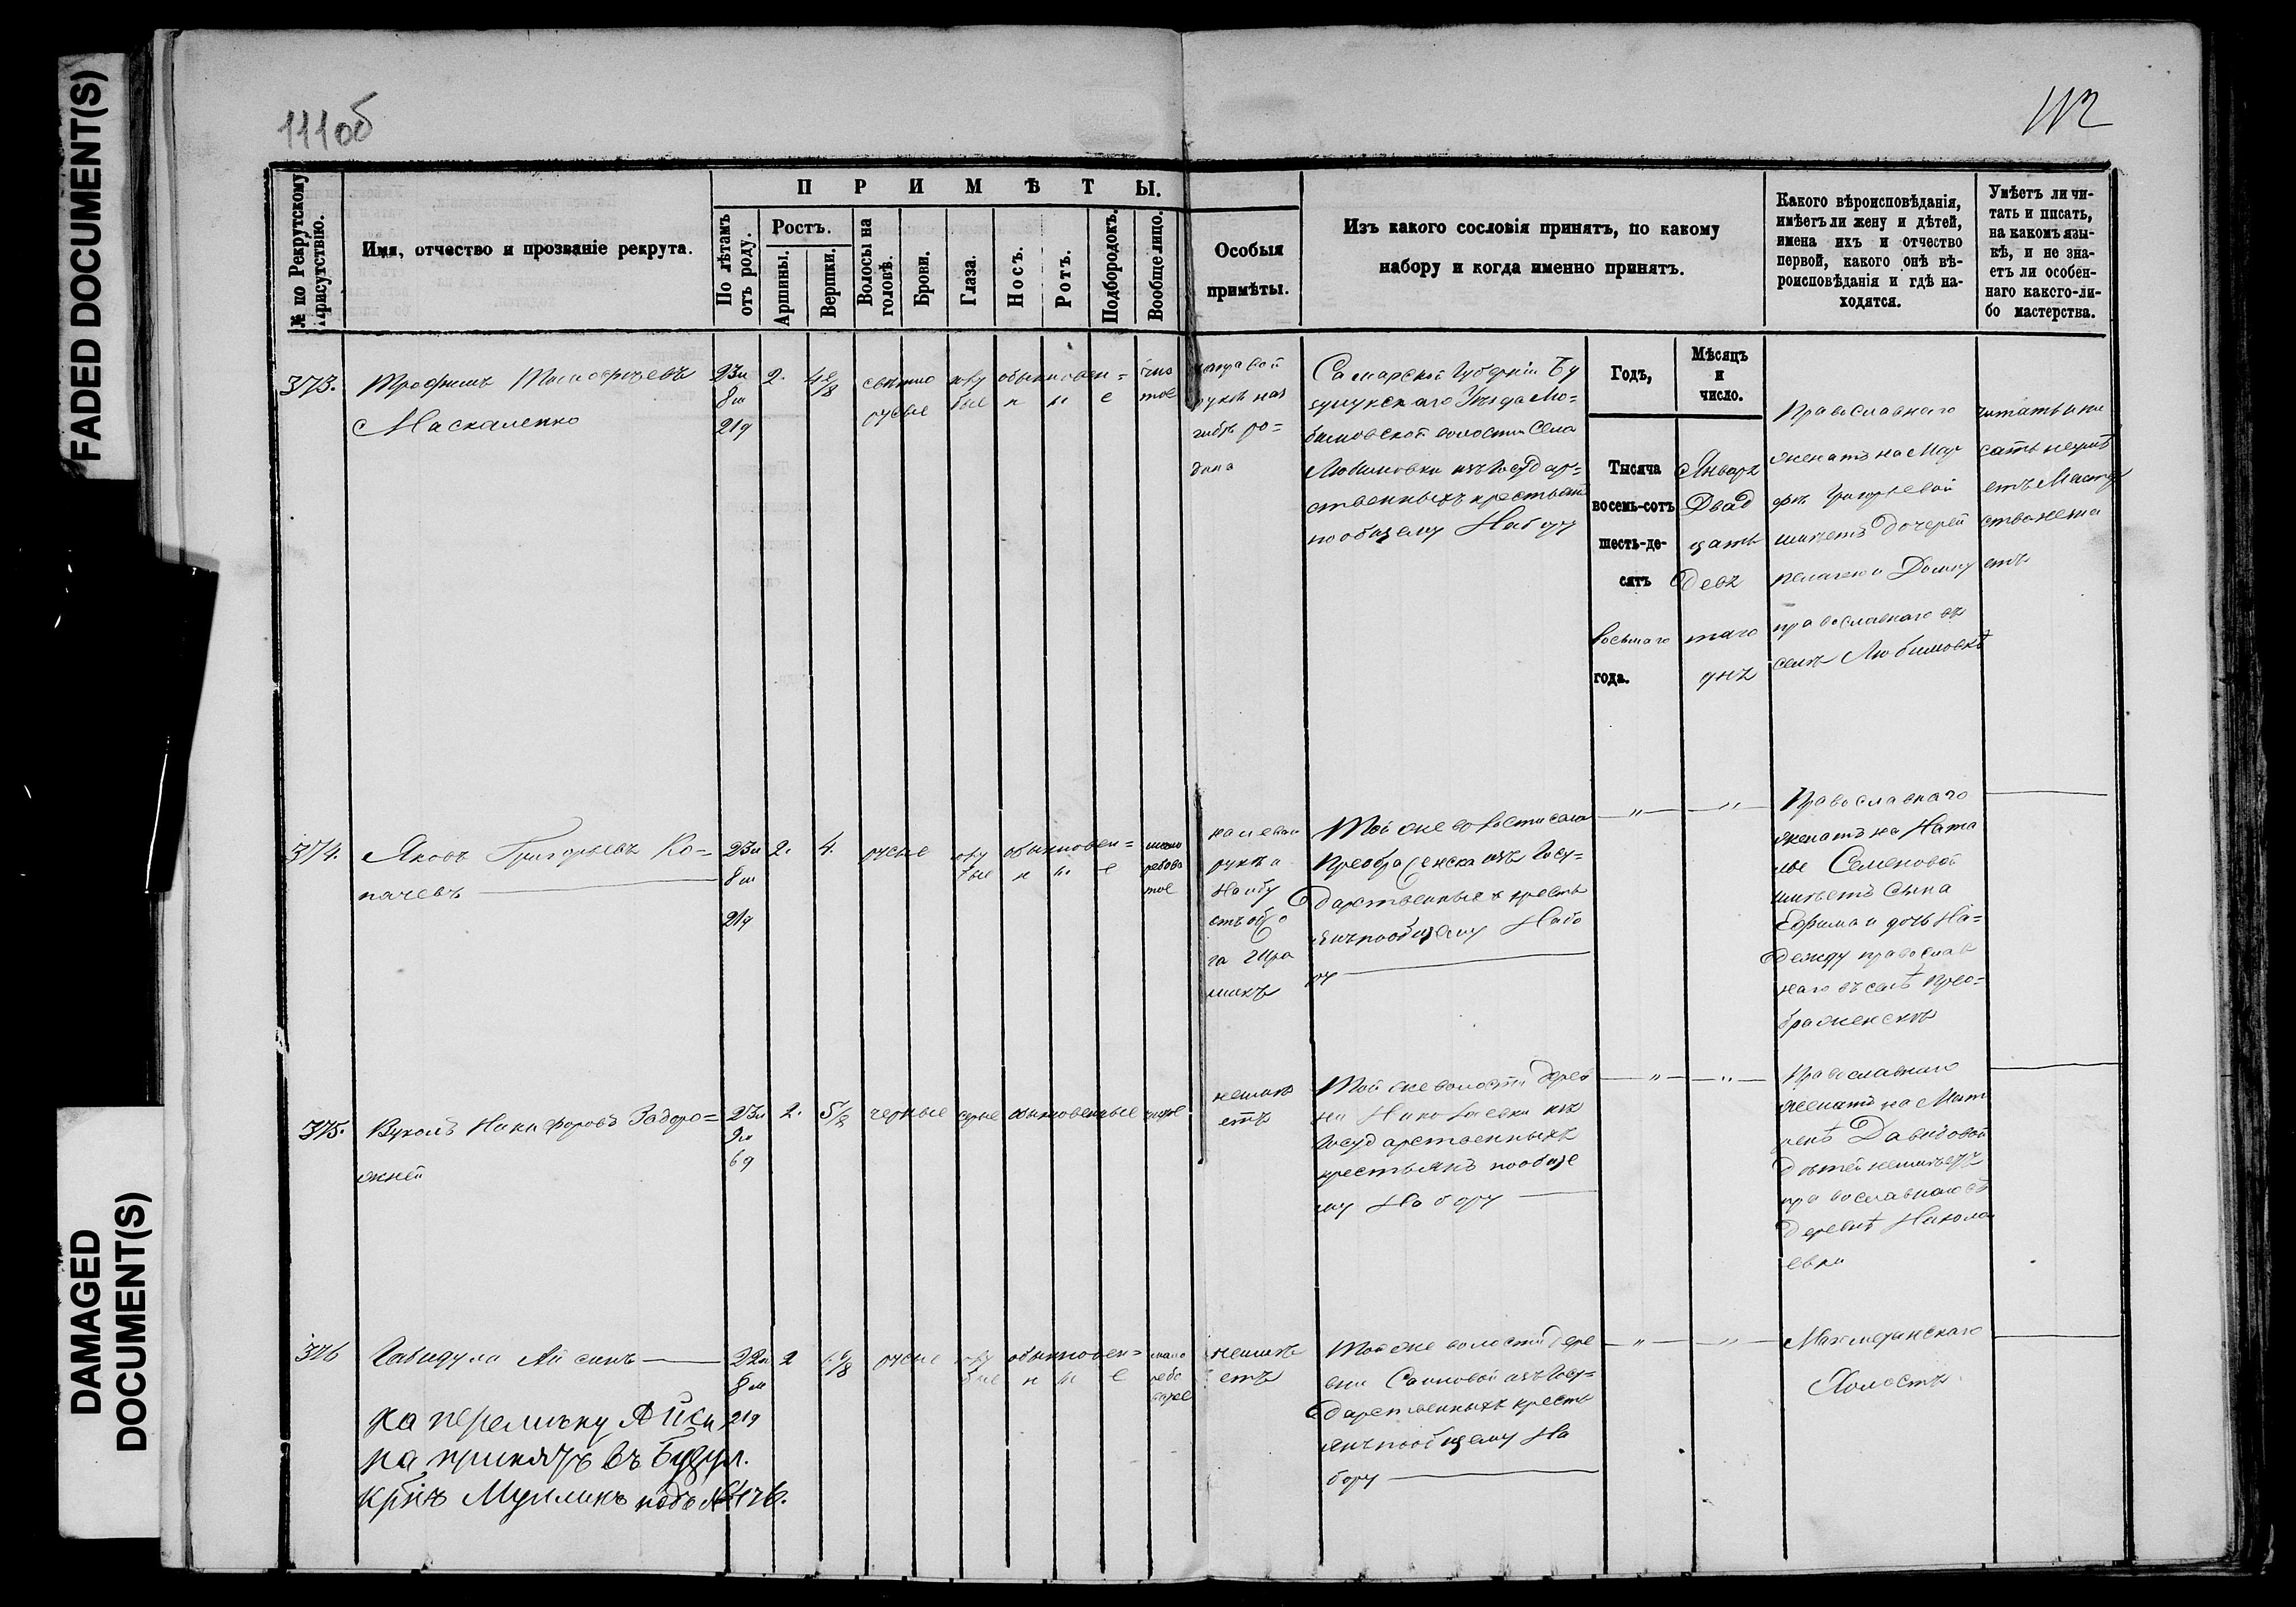 FADED DOCUMENT(S)
DAMAGED
DOCUMENT(S)
111об
112
№ по Рекрутскому
присутствію.
Имя, отчество и прозваніе рекрута.
ПРИМѢТЫ.
По лѣтамъ
отъ роду.
Ростъ.
Аршины.
Вершки.
Волосы на
головѣ.
Брови.
Глаза.
Носъ.
Ротъ.
Подбородокъ.
Вообще лицо.
Особыя
примѣты.
Изъ какого сословія принятъ, по какому
набору и когда именно принятъ.
Какого вѣроисповѣданія,
имѣетъ ли жену и дѣтей,
имена ихъ и отчество
первой, какого онѣ вѣ-
роисповѣданія и гдѣ на-
ходятся.
Умѣетъ ли чи-
тать и писать,
на какомъ язы-
кѣ, и не зна-
етъ ли особен-
наго какого-ли-
бо мастерства.
373.
Трофимъ
Маскаленко
23л
8м
21д
2.
свѣтло
русые
голу
бые
обыкновен=
н ы е
чис
тое
правой
рукѣ
Самарской Губерніи Бу
зулукскаго Уѣзда Лю=
бимовской волости Села
Любимовки изъ Государ=
ственныхъ крестьянъ
по общему Набору
Годъ,
Мѣсяцъ
и
число.
Тысяча
восемь-сотъ
шесть-де-
сятъ
восьмаго
года.
Января
Двад
цать
девя
таго
дня
Православнаго
женатъ на Мар
фѣ Григорьевой
имѣетъ дочерей
Пелагею и Домну
православнаго въ
селѣ Любимовкѣ
читать и пи
сать неумѣ
етъ Мастер
ства незна
етъ
374.
Яковъ Григорьевъ Ко=
пачевъ
23л
8м
21д
2.
4.
русые
голу
бые
обыкновен=
н ы е
рябова
тое
на левой
рукѣ
Той же волости села
Преображенска изъ Госу=
дарственныхъ кресть
янъ по общему Набо
ру
" "
Православнаго
женатъ на Ната
лье Семеновой
имѣетъ сына
Ефима и дочь На=
дежду православ
наго въ селѣ Прео=
браженскѣ
375.
Вуколъ Никифоровъ Задоро=
жней
23л
9м
6д
2.
5/8
черные
серые
обыкновенные
чистое
неимѣ
етъ
Той же волости дерев
ни Николаевки изъ
Государственныхъ
крестьянъ по обще
му Набору
" "
Православнаго
женатъ на Мат
ренѣ Давыдовой
дѣтей неимѣетъ
православнаго въ
деревнѣ Никола
евки
376
Габидула Айсинъ
22л
8м
21д
2
русые
голу
бые
обыкновен=
н ы е
мало
рябо
ватое
неимѣ
етъ
Той же волости дере
вни изъ Госу=
дарственныхъ кресть
янъ по общему На
бору
" "
Магометанскаго
Холостъ
На перемѣну Айси
на принятъ въ Бузул.
подъ №